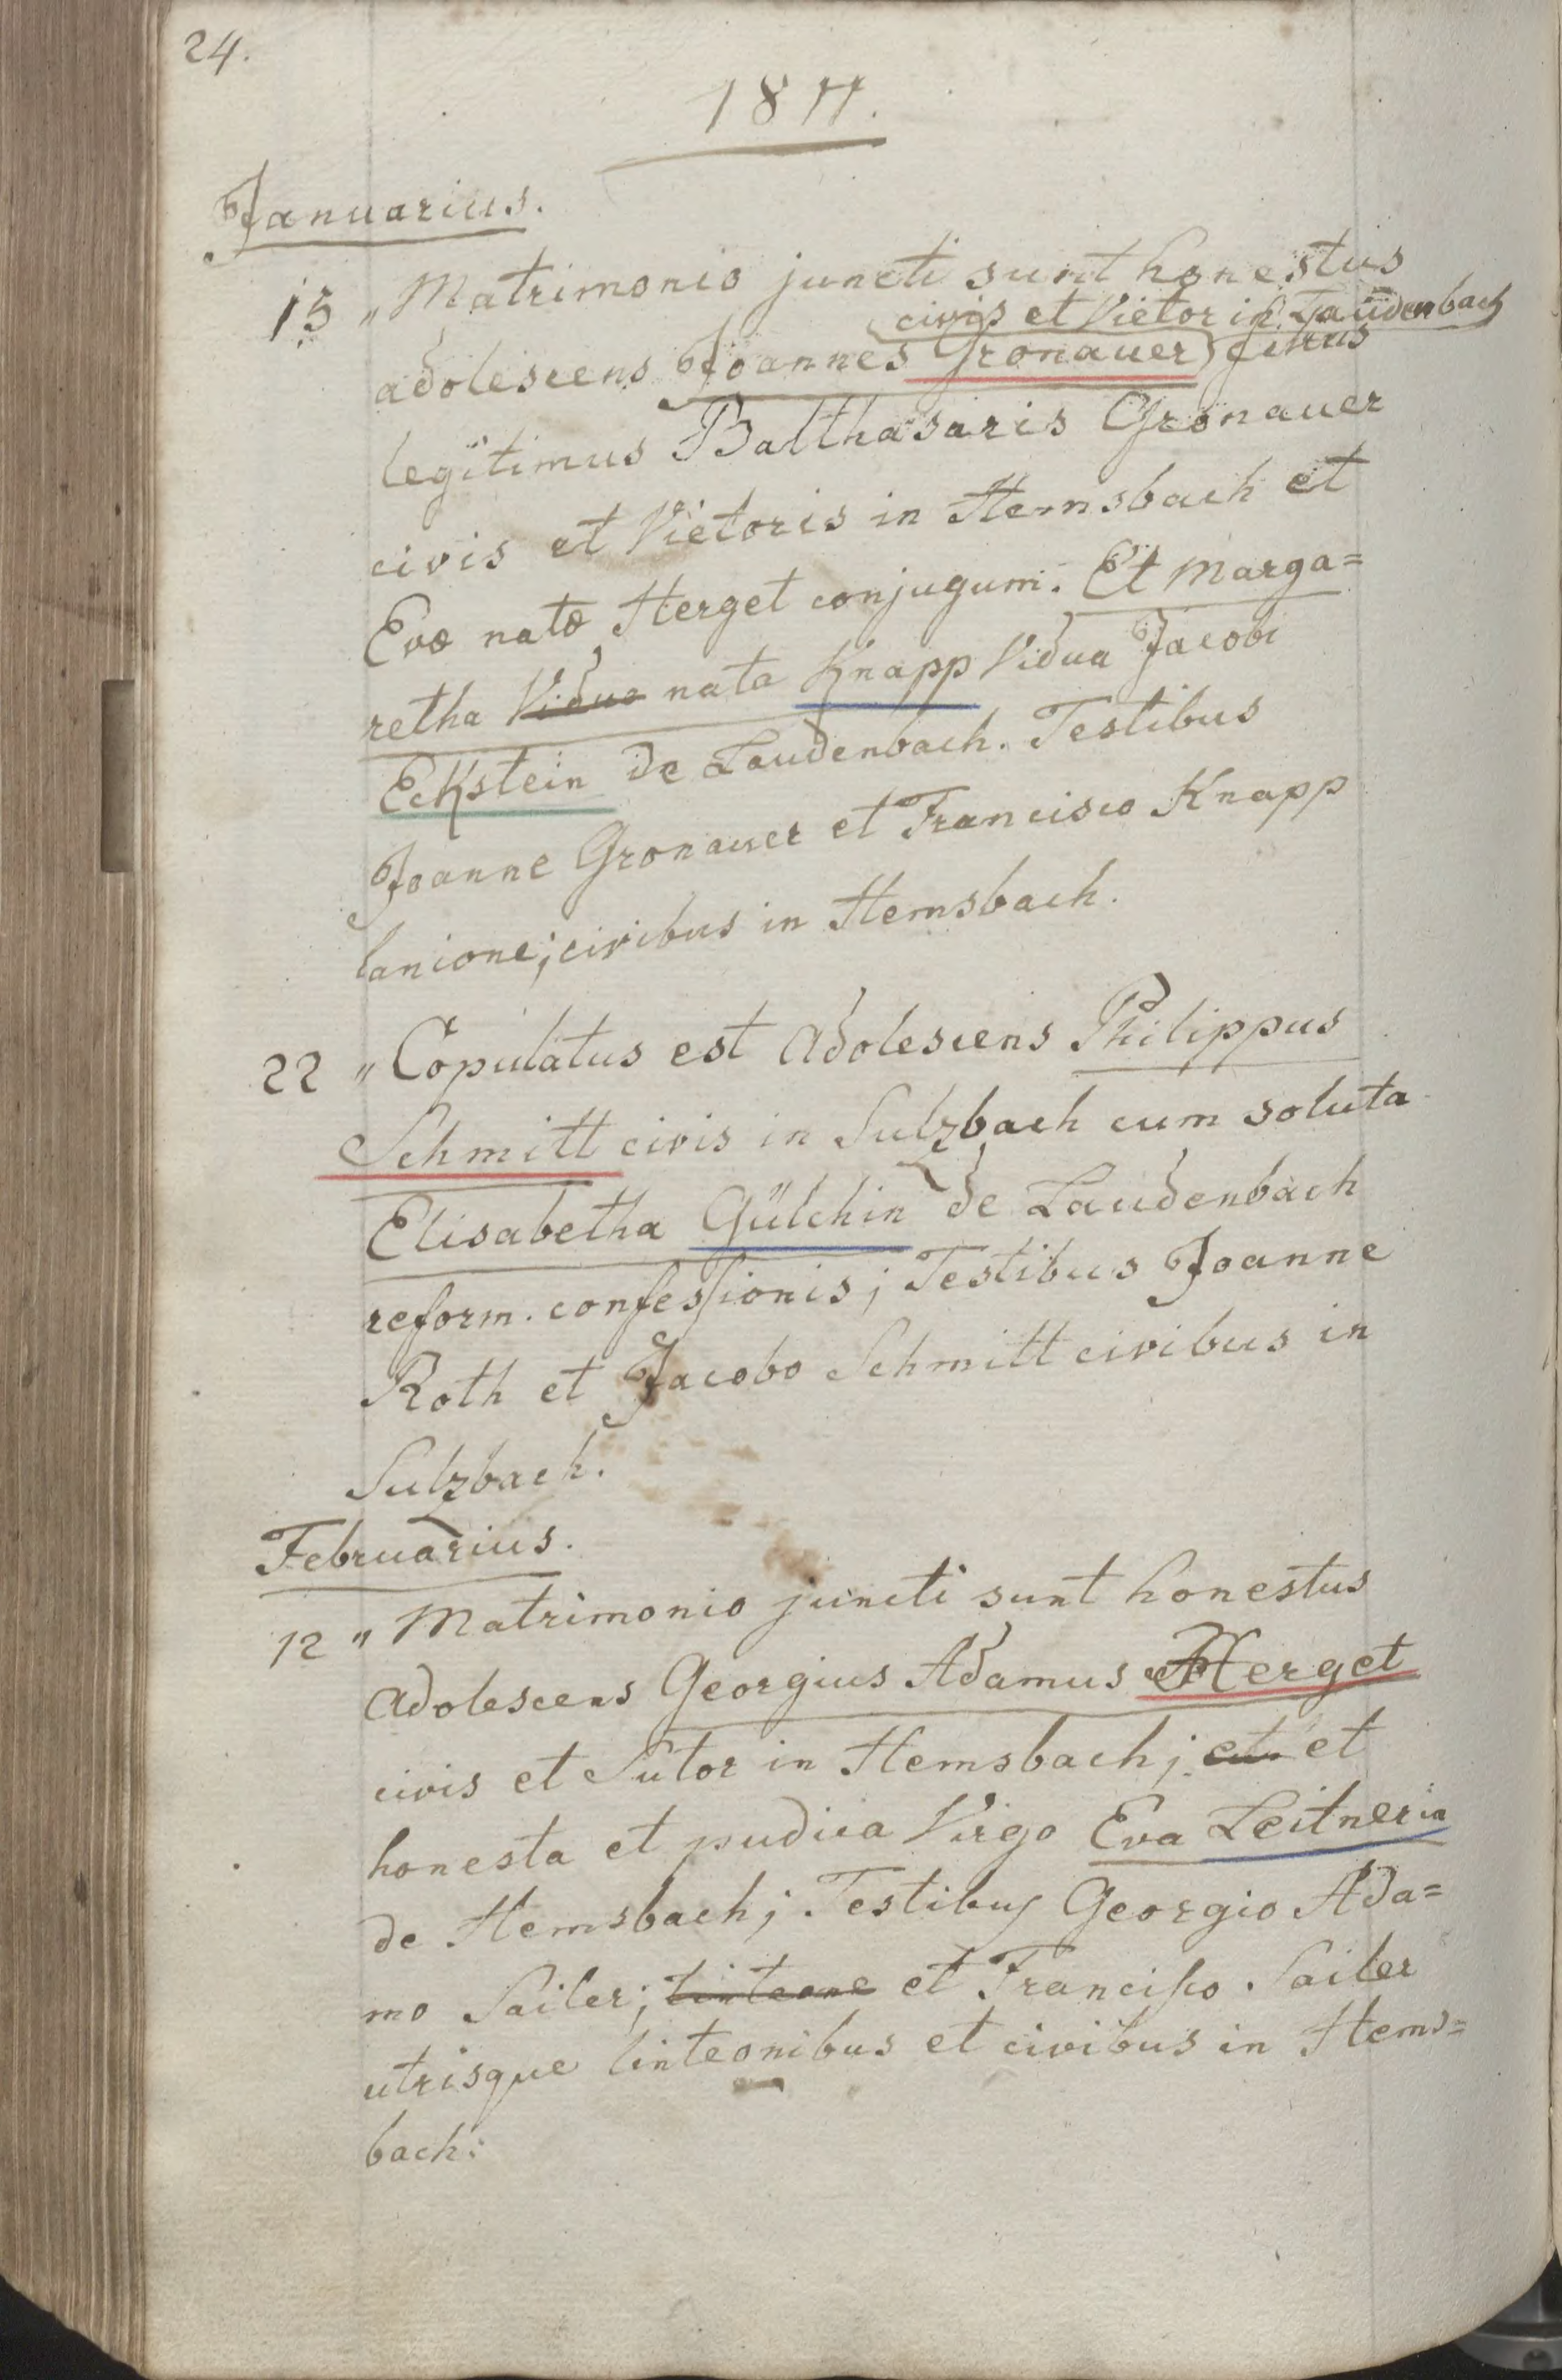 24.
1811.
Januarius.
15 " Matrimonio juncti sunt honestus
civis et Vietor in Laudenbach
adolescens Joannes Gronauer filius
legitimus Balthasaris Gronauer
civis et Vietoris in Hemsbach et
Evæ natæ Herget conjugum. Et Marga=
retha Vidua nata Knapp Vidua Jacobi
Eckstein de Laudenbach. Testibus
Joanne Gronauer et Francisco Knapp
lanione; civibus in Hemsbach.
22 " Copulatus est adolescens Philippus
Schmitt civis in Sulzbach cum soluta
Elisabetha Gülchin de Laudenbach
reform. confessionis; Testibus Joanne
Roth et Jacobo Schmitt civibus in
Sulzbach.
Februarius.
12 " Matrimonio juncti sunt honestus
adolescens Georgius Adamus Herget
civis et Sutor in Hemsbach; et et
honesta et pudica Virgo Eva Leitneria
de Hemsbach; Testibus Georgio Ada=
mo Sailer; linteone et Francisco Sailer
utrisque linteonibus et civibus in Hems=
bach: